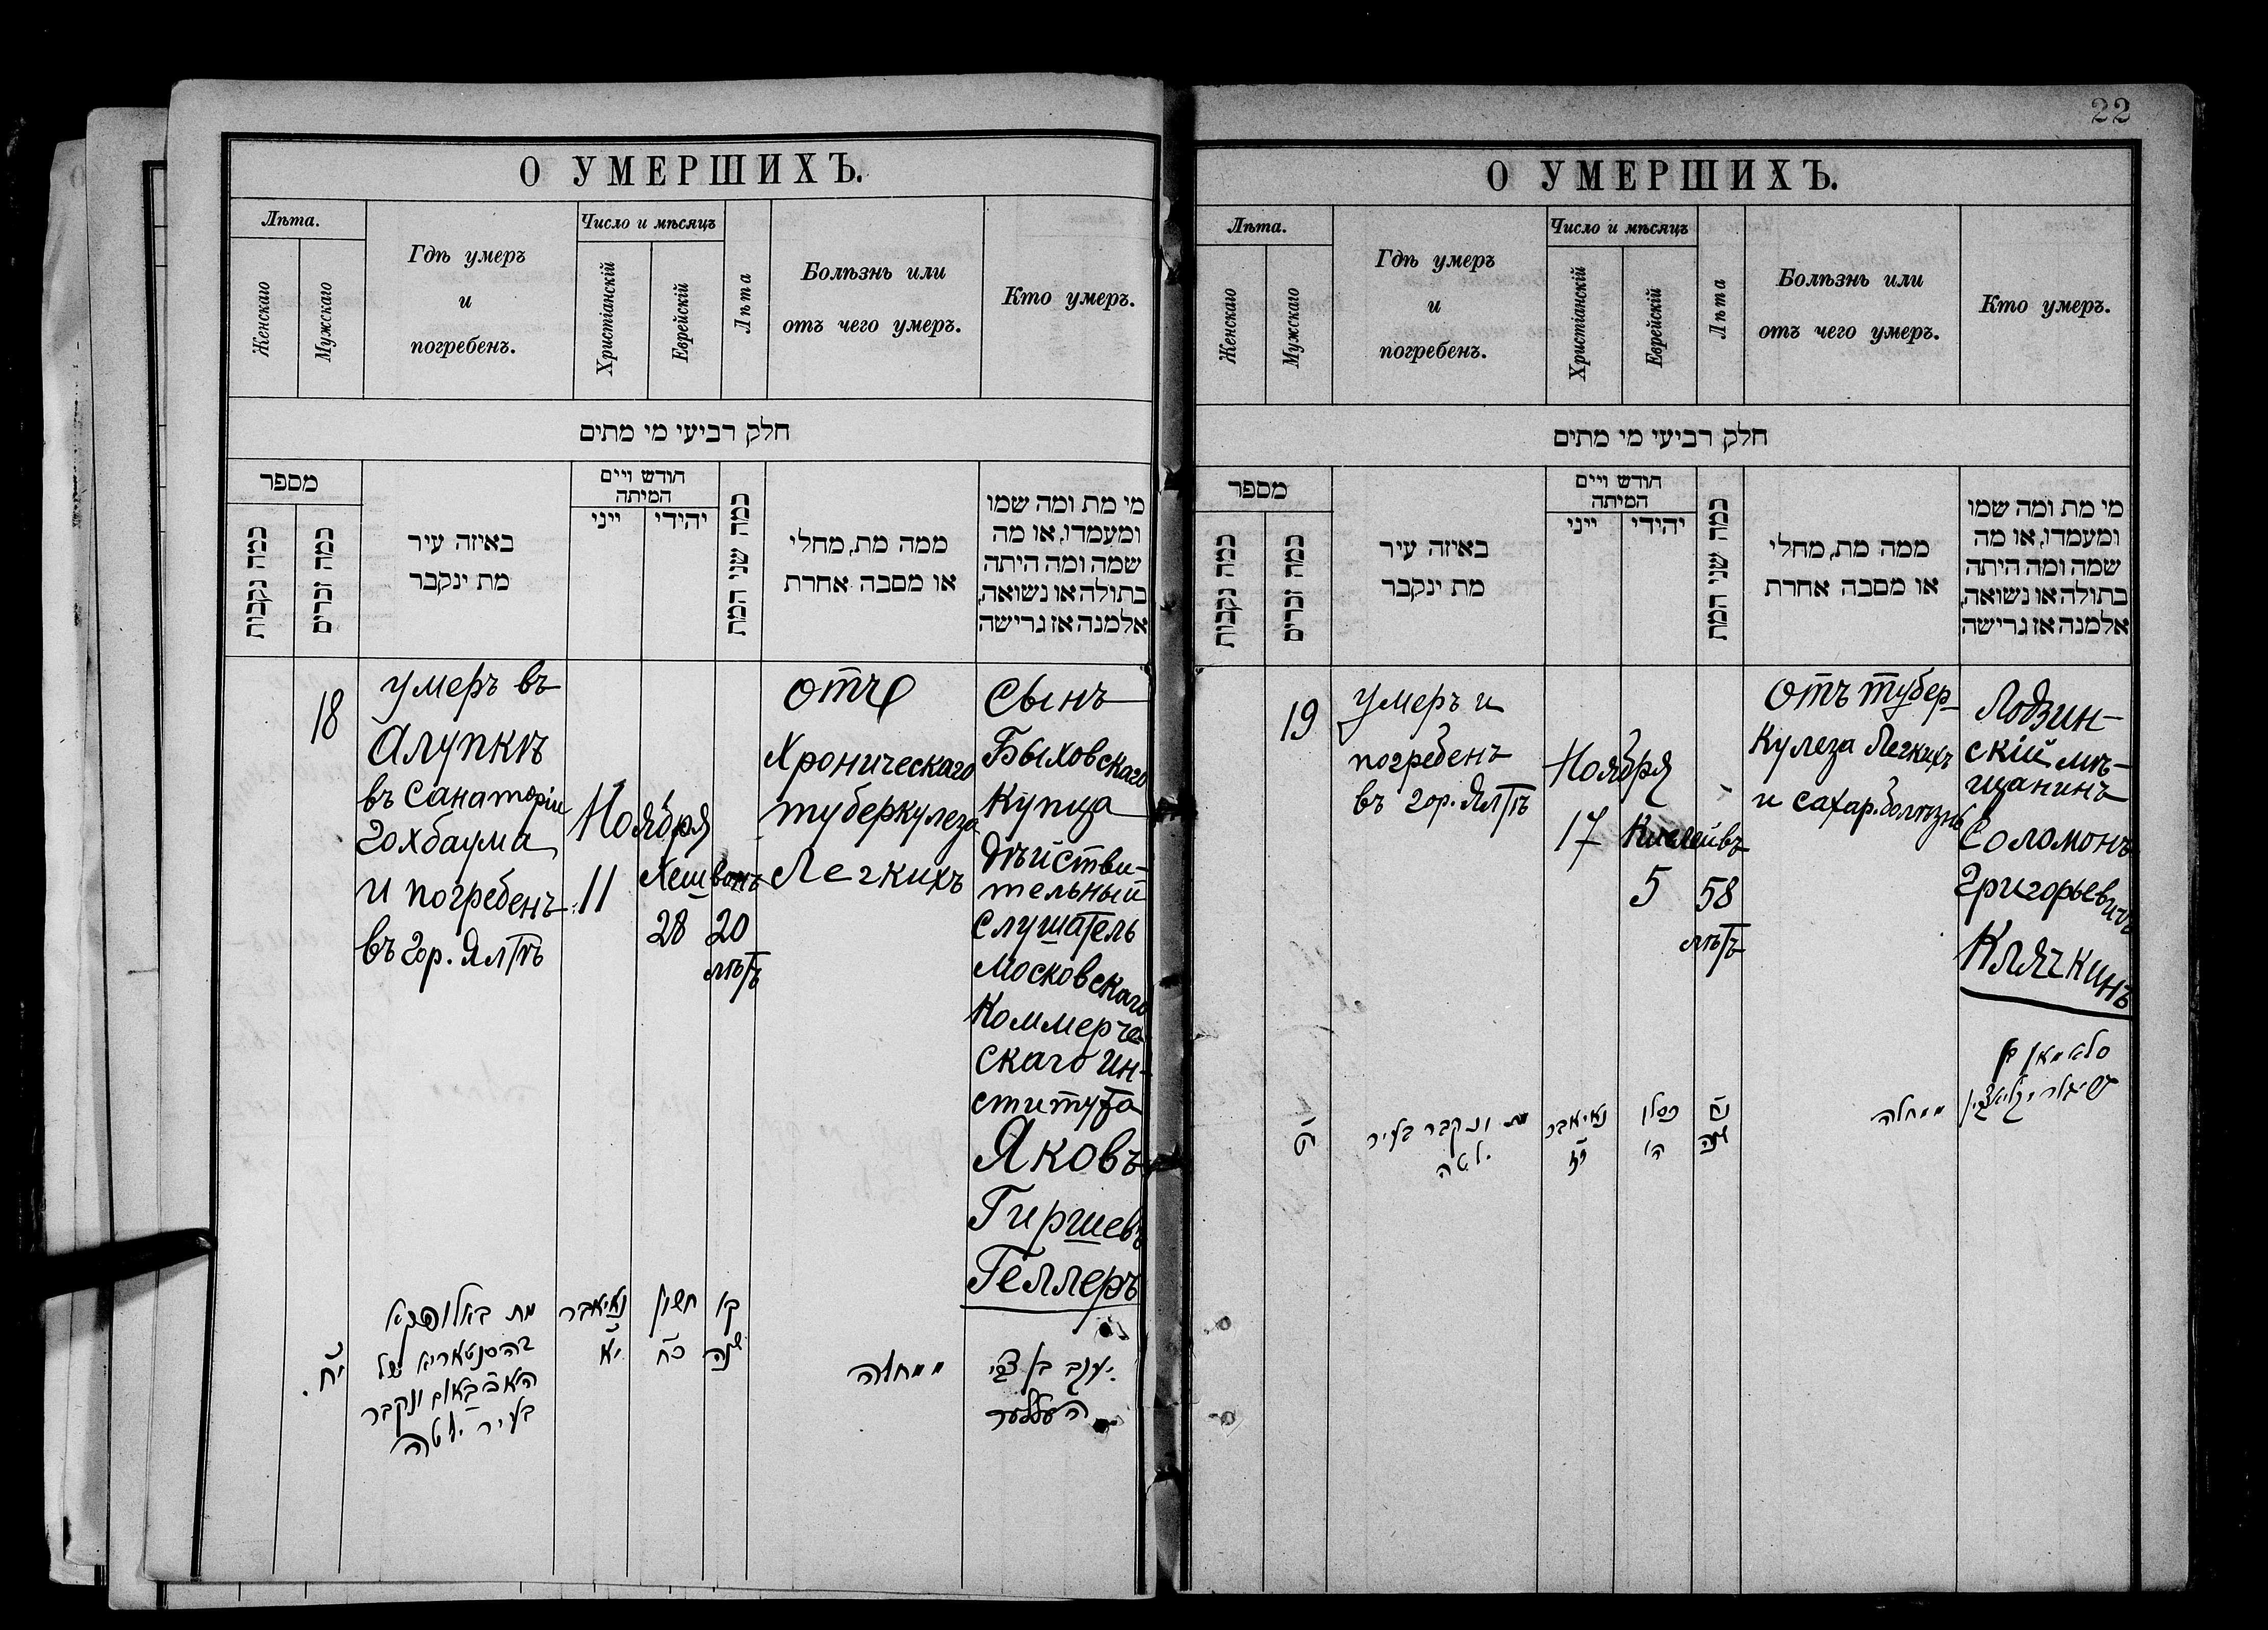 22
О УМЕРШИХЪ.
Лѣта.
Женскаго
Мужскаго
Гдѣ умеръ
и
погребенъ.
Число и мѣсяцъ
Христіанскій
Еврейскій
Лѣта
Болѣзнь или
отъ чего умеръ.
Кто умеръ.
חלק רביעי מי מתים
מספר
כמה נקבות
כמה זכרים
באיזה עיר
מת ינקבר
חודש ויים
המיתה
ייני
יהידי
כמה שני המת
ממה מת, מחלי
או מסבה אחרת
מי מת ומה שמו
ומעמדו, או מה
שמה ומה היתה
בתולה או נשואה,
אלמנה אז גרישה
18
умеръ въ
Алупкѣ
въ санаторіи
Гохбаума
и погребенъ
въ гор. Ялтѣ
Ноября
11
Хешвонъ
28
20
лѣтъ
отъ
Хроническаго
туберкулеза
Легкихъ
Сынъ
Быховскаго
Купца
дѣйстви-
тельный
слушатель
Московскаго
Коммерче-
скаго Ин-
ститута
Яковъ
Гиршевъ
Геллеръ
י״ח.
מת באלופקא
בהסנטאריא של
האכבאום ונקבר
בעיר ילטה
נאיאבר
י״א
חשון
כ״ח
שנה
ממחלה
יעקב בן צבי
העללער
О УМЕРШИХЪ.
Лѣта.
Женскаго
Мужскаго
Гдѣ умеръ
и
погребенъ.
Число и мѣсяцъ
Христіанскій
Еврейскій
Лѣта
Болѣзнь или
отъ чего умеръ.
Кто умеръ.
חלק רביעי מי מתים
מספר
כמה נקבות
כמה זכרים
באיזה עיר
מת ינקבר
חודש ויים
המיתה
ייני
יהידי
כמה שני המת
ממה מת, מחלי
או מסבה אחרת
מי מת ומה שמו
ומעמדו, או מה
שמה ומה היתה
בתולה או נשואה,
אלמנה אז גרישה
19
умеръ и
погребенъ
въ гор. Ялтѣ
Ноября
17
Кислейвъ
5
58
лѣтъ
Отъ тубер-
кулеза Легкихъ
и сахар. болѣзнь
Лодзин-
скій мѣ-
щанинъ
Соломонъ
Григорьевичъ
Клячкинъ
י״ט
מת ונקבר בעיר
ילטה
נאיאבר
י״ז
כסלו
ה׳
נ״ח
שנה
ממחלה
סלאמאן בן